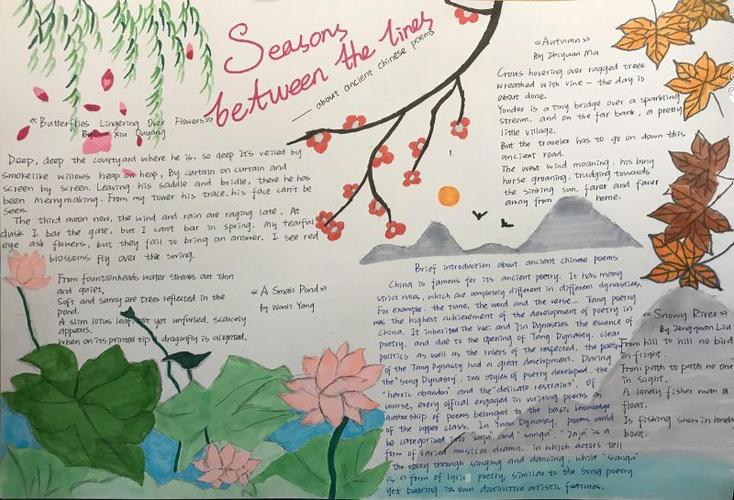 Seasons
between the lines
—— about ancient chinese poems
«Butterflies Lingering Over Flowers»
By Xiu Ouyang
Deep, deep the courtyard where he is, so deep It's veiled by
smokelike willows heap on heap, By curtain on curtain and
screen by screen. Leaving his saddle and bridle, there he has
been merrymaking. From my tower his trace, his face can't be
seen.
The third moon now, the wind and rain are raging late, At
dusk I bar the gate, but I can't bar in spring. My tearful
eye ask flowers, but they fail to bring an answer. I see red
blossoms fly over the swing.
From fountainheads water streaks out thin
and quiet,
Soft and sunny are trees reflected in the
pond.
A slim lotus leaf, not yet unfurled, scacely
appears,
When on its pointed tip a dragonfly is aligned.
«A Small Pond»
by Wanli Yang
«Autumn»
By Zhiyuan Ma
Crows hovering over rugged trees
wreathed with vine — the day is
about done.
Yonder is a tiny bridge over a sparkling
stream, and on the far bank, a pretty
little village.
But the traveler has to go on down this
ancient road.
The west wind moaning, his bony
horse groaning, trudging towards
the sinking sun, farer and farer
away from home.
Brief introduction about ancient chinese poems
China is famous for its ancient poetry. It has many
strict rules, which are completely different in different dynasties.
For example, the tune, the word and the verse... Tang poetry
was the highest achievement of the development of poetry in
China. It inherited the Wei and Jin Dynasties the essence of
poetry, and due to the opening of Tang Dynasty, clear
politics as well as the rulers of the respected, the poetry
of the Tang Dynasty had a great development. During
the "Song Dynasty", two styles of poetry developed, the
"heroic abandon" and the "delicate restraint". Of
course, every official engaged in writing poems as
authorship of poems belonged to the basic knowledge
of the upper class. In Yuan Dynasty, poems could
be categorized into "zaju" and "sanqu". "Zaju" is a
form of varied musical drama, in which actors tell
the story through singing and dancing, while "sanqu"
is a form of lyric poetry, similar to the Song poetry,
Yet bearing its own distinctive artistic features.
«Snowy River»
By Zongyuan Liu
From hill to hill no bird
in flight.
From path to path no one
in sight.
A lonely fisher man a
float,
Is fishing snow in lonely
boat.